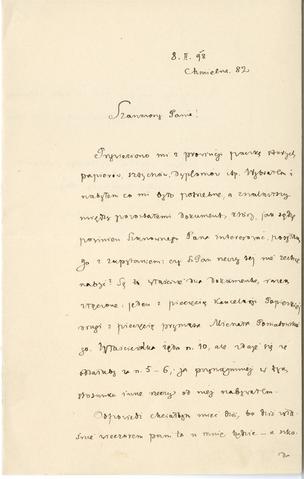 8. II. 98
Chmielna. 82
Szanowny Panie!
Przywieziono mi z prowincji paczkę starych
papierów, dyplomów itp. Wybrałem i
nabyłem co mi było potrzebne, a znalazłszy
między pozostałemi dokument, który, jak sądzę
powinien Szanownego Pana interesować, posyłam
go z zapytaniem: czy SzPan nie
nabyć? Są to właściwie dwa dokumenty, razem
złączone: jeden z pieczęcią Kancelarji Papieskiej
drugi z pieczęcią prymasa Michała Poniatowskie-
go. Właścicielka żąda rs. 10, ale zdaje się że
za rs. 5-6, ja przynajmniej w tym
stosunku inne rzeczy od niej nabywałem.
Odpowiedź chciałbym mieć dziś, bo dziś
wieczorem pani ta u mnie będzie - a